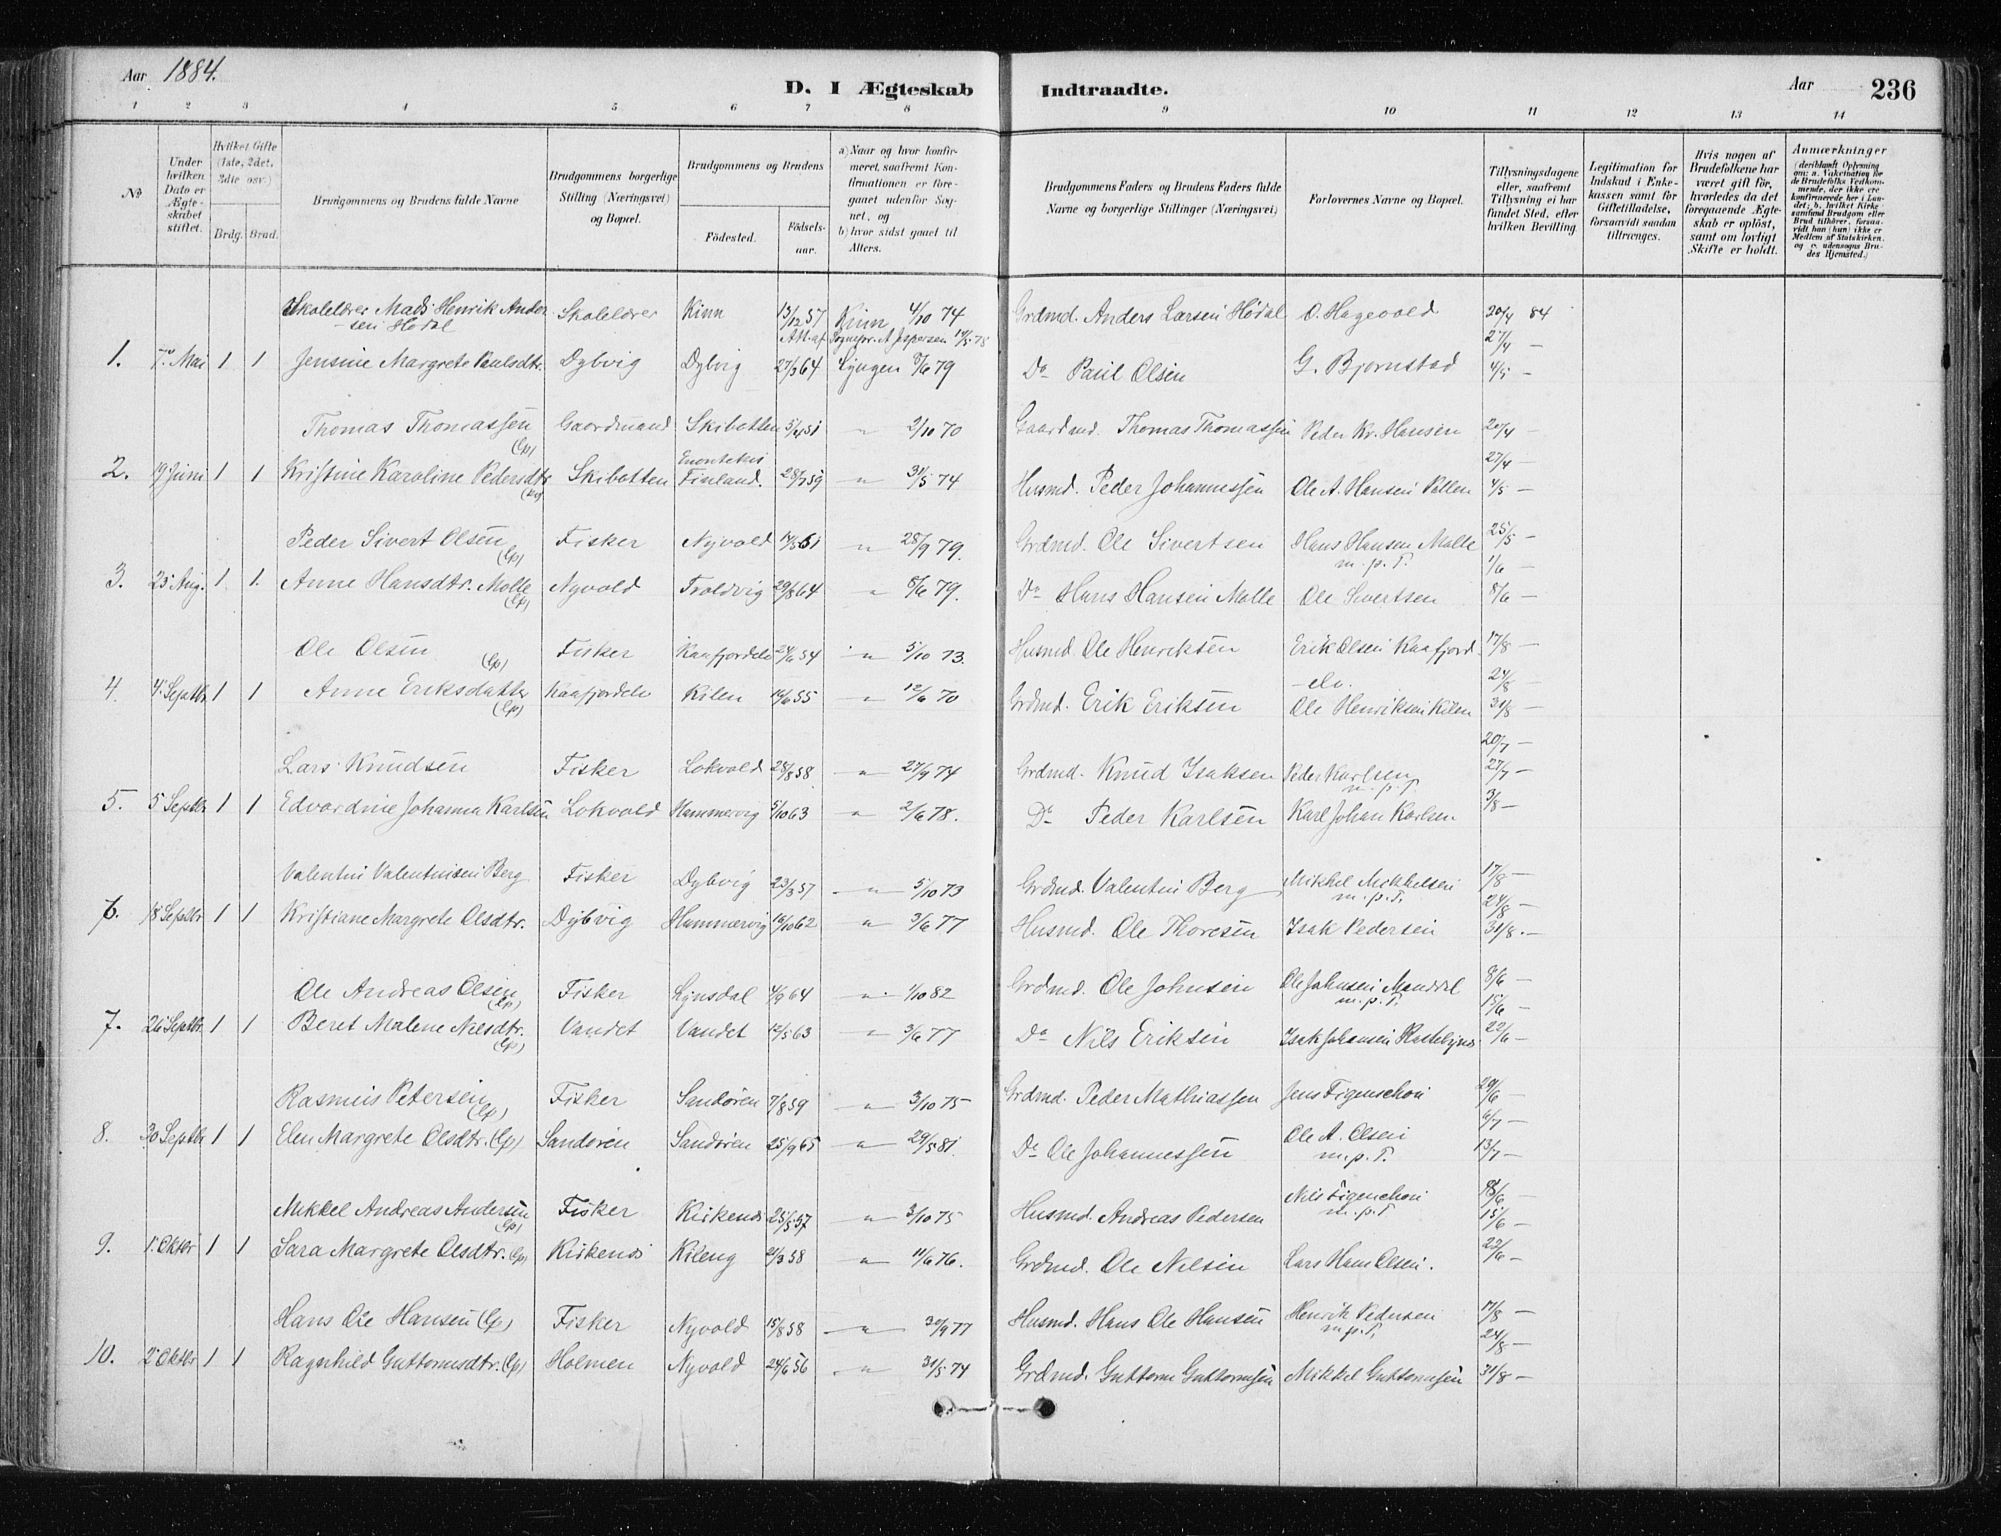 Aar 1884.
D. I Ægteskab Indtraadte.
Aar
236
1 2 3 4 5 6 7 8 9 10 11 12 13 14
№
Under hvilken Dato er Ægteskabet stiftet.
Hvilket Gifte (1ste, 2det, 3die osv.)
Brdg. Brud.
Brudgommens og Brudens fulde Navne
Brudgommens borgerlige Stilling (Næringsvei) og Bopæl.
Brudgommens og Brudens
Fødested.
Fødselsaar.
a) Naar og hvor konfirmeret, saafremt Konfirmationen er foregaaet udenfor Sognet, og
b) hvor sidst gaaet til Alters.
Brudgommens Faders og Brudens Faders fulde Navne og borgerlige Stillinger (Næringsvei)
Forlovernes Navne og Bopæl.
Tillysningsdagene eller, saafremt Tillysning ei har fundet Sted, efter hvilken Bevilling.
Legitimation for Indskud i Enkekassen samt for Giftetilladelse, forsaavidt saadan tiltrænges.
Hvis nogen af Brudefolkene har været gift før, hvorledes da det foregaaende Ægteskab er opløst, samt om lovligt Skifte er holdt.
Anmærkninger
Skolelærer Mads Henrik Andersen Hødal Skolelærer Kinn 13/12 57 Kinn 4/10 74 Grdmd. Anders Larsen Hødal O. Hagevold 20/4 84
Att. af Sognepr. A Jespersen
27/4 —
1. 7de Mai 1 1 Jensine Margrete Paulsdtr. Dybvig Dybvig 27/3 64 Lyngen 8/6 79 Do Paul Olsen G. Bjørnstad 4/5 —
Thomas Thomassen (Lp) Gaardmand Skibotten 5/4 51 — 2/10 70 Gaardmd. Thomas Thomassen Peder Kr. Hansen 20/4 —
27/4 —
2. 19 Juni 1 1 Kristine Karoline Pedersdtr Skibotten Enontekis Finland. 28/7 59 — 31/5 74 Husmd. Peder Johannessen Ole A. Hansen Pollen 4/5 —
Peder Sivert Olsen (Lp) Fisker Nyvold 14/5 61 — 28/9 79. Grdmd. Ole Sivertsen Hans Hansen Molle m.p.T. 25/5 —
1/6 —
3. 25 Aug. 1 1 Anne Hansdtr. Molle (Lp) Nyvold Troldvig 29/8 64 — 8/6 79. Do Hans Hansen Molle Ole Sivertsen 8/6 —
Ole Olsen (Lp) Fisker Kaafjordelv 24/6 54 — 5/10 73. Husmd. Ole Henriksen Erik Olsen Kaafjordelv. 17/8 —
24/8 —
4. 4 Septbr. 1 1 Anne Eriksdatter (Lp) Kaafjordelv Kilen 14/6 55 — 12/6 70 Grdmd. Erik Eriksen Ole Henriksen Kilen 31/8 —
20/7 —
Lars Knudsen Fisker Lokvold 28/8 58 — 27/9 74 Grdmd. Knud Isaksen Peder Karlsen m.p.T 27/7 —
5. 5 Septbr 1 1 Edvardine Johanna Karlsen Lokvold Hammervig 5/10 63 — 2/6 78. Do Peder Karlsen Karl Johan Karlsen 3/8 —
Valentin Valentinsen Berg Fisker Dybvig 23/3 57 — 5/10 73 Grdmd. Valentin Berg Mikkel Mikkelsen m.p.T. 17/8 —
24/8 —
6. 18 Septbr 1 1 Kristiane Margrete Olsdtr. Dybvig Hammervig 16/10 62 — 3/6 77 Husmd. Ole Thoresen Isak Pedersen 31/8. —
Ole Andreas Olsen (Lp) Fisker Lynsdal 4/9 64 — 1/10 82 Grdmd. Ole Johnsen Ole Johnsen Manddal m.p.T. 8/6 —
15/6 —
7. 26 Septbr. 1 1 Beret Malene Nilsdtr. (Lp) Vandet Vandet 12/5 63 — 3/6 77 Do Nils Eriksen Isak Johansen 22/6 —
Rasmus Petersen (Lp) Fisker Sandøren 7/8 59 — 3/10 75 Grdmd. Peder Mathiassen Jens Figenschou 29/6 —
6/7 —
8. 30 Septbr 1 1 Elen Margrete Olsdtr. (Lp) Sandøren Sandøren 25/9 65 — 29/5 81. Do Ole Johannessen Ole A. Olsen m.p.T. 13/7 —
Mikkel Andreas Andersen (Lp) Fisker Kirkenes 25/5 57 — 3/10 75 Husmd. Andreas Pedersen Nils Figenschou m.p.T 8/6 —
15/6 —
9. 1. Oktbr 1 1 Sara Margrete Olsdtr. (Lp) Kirkenes Kileng 21/3 58 — 11/6 76. Grdmd. Ole Nilsen Lars Hans Olsen. 22/6 —
Hans Ole Hansen (Lp) Fisker Nyvold 15/8 58 — 30/9 77 Husmd. Hans Ole Hansen Henrik Pedersen m.p.T. 17/8 —
24/8 —
10. 2 Oktbr 1 1 Ragnhild Guttormsdtr. (Lp) Holmen Nyvold 24/6 56 — 31/5 74 Grdmd. Guttorm Guttormsen Mikkel Guttormsen 31/8 —